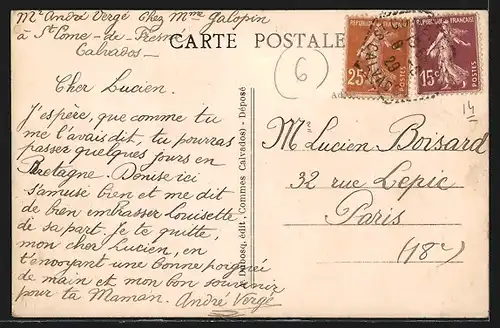 Mr André Vergé chez Mme Galopin
à St Come - de - Fresné
Calvados -
CARTE POSTALE
Cher Lucien.
J'espère, que comme tu
me l'avais dit, tu pourras
passer quelques jours en
Bretagne. Denise ici
s'amuse bien et me dit
de bien embrasser Louisette
de sa part. Je te quitte,
mon cher Lucien, en
t'envoyant une bonne poignée
de main et mon bon souvenir
pour ta Maman. André Vergé
Dubosq, édit. Commes (Calvados) - Déposé
6
25c
POSTES
RÉPUBLIQUE FRANÇAISE
15c
POSTES
14
Mr Lucien Boisard
32 rue Lepic
Paris
(18e)